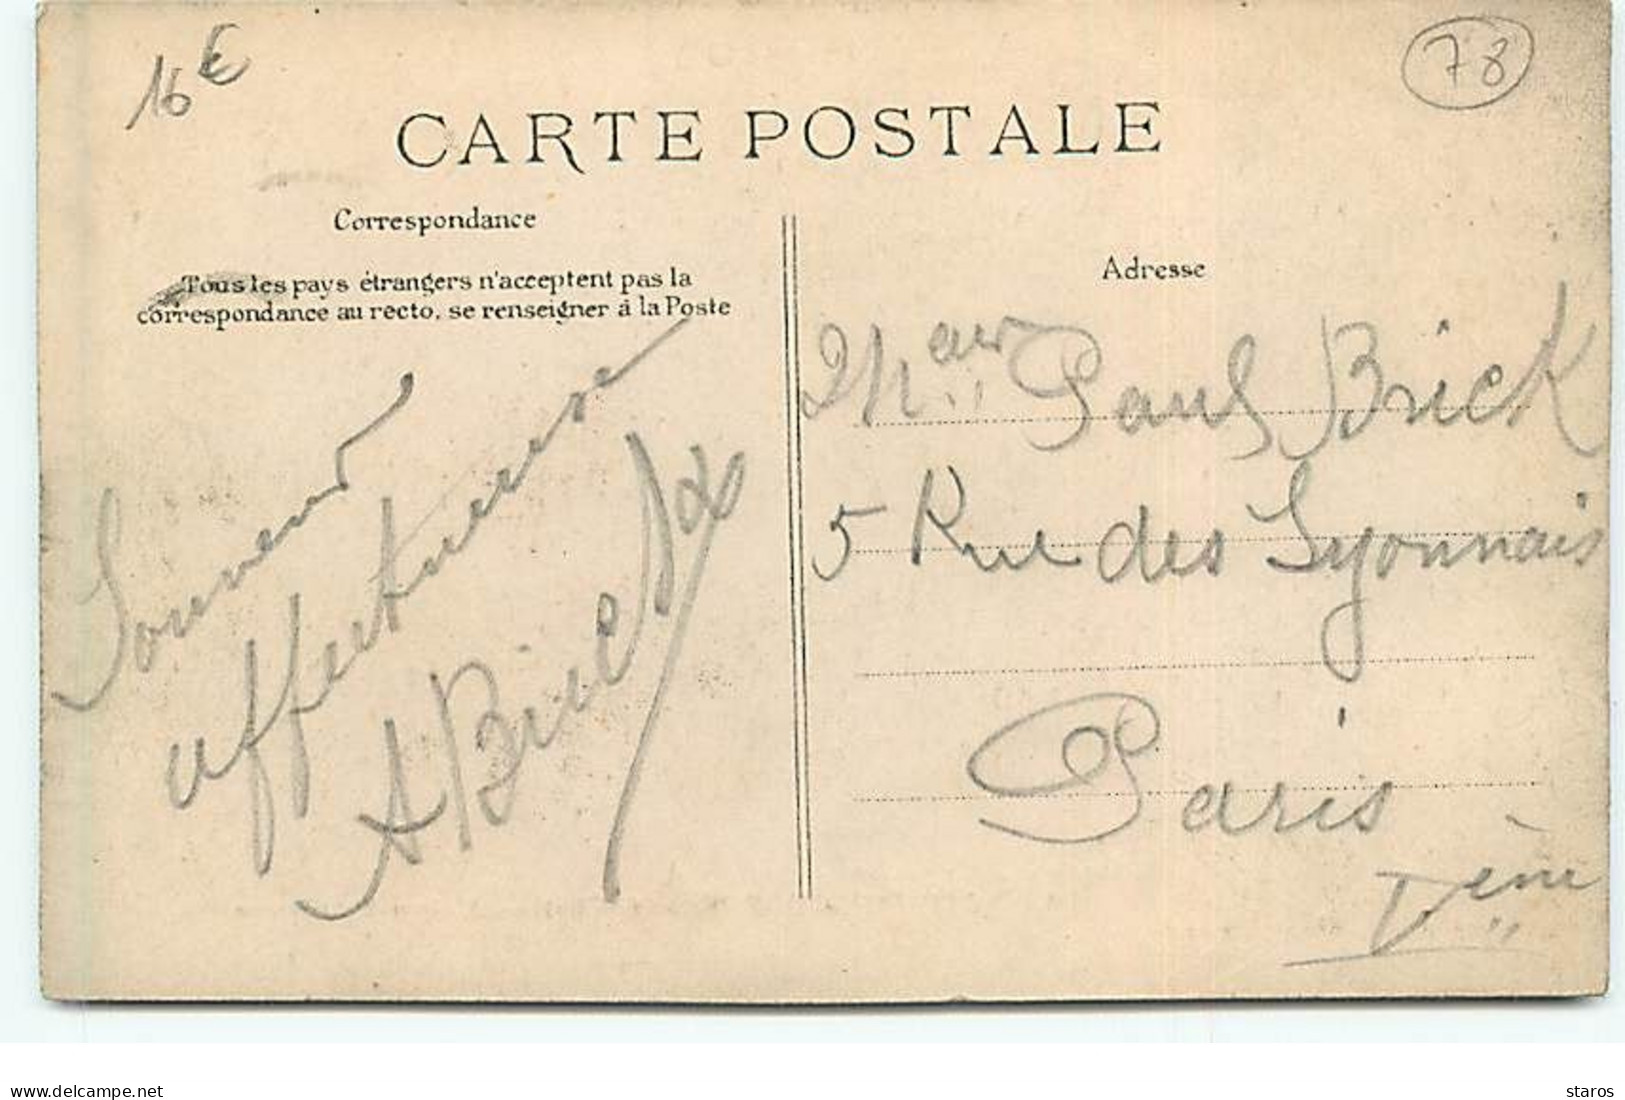 16€
78
CARTE POSTALE
Correspondance
Tous les pays étrangers n'acceptent pas la
correspondance au recto, se renseigner à la Poste
Souvenir
affectueuse
A Bric
Adresse
Paul Brick
5 Rue des Lyonnais
Paris
Vème
delcampe.net
staros